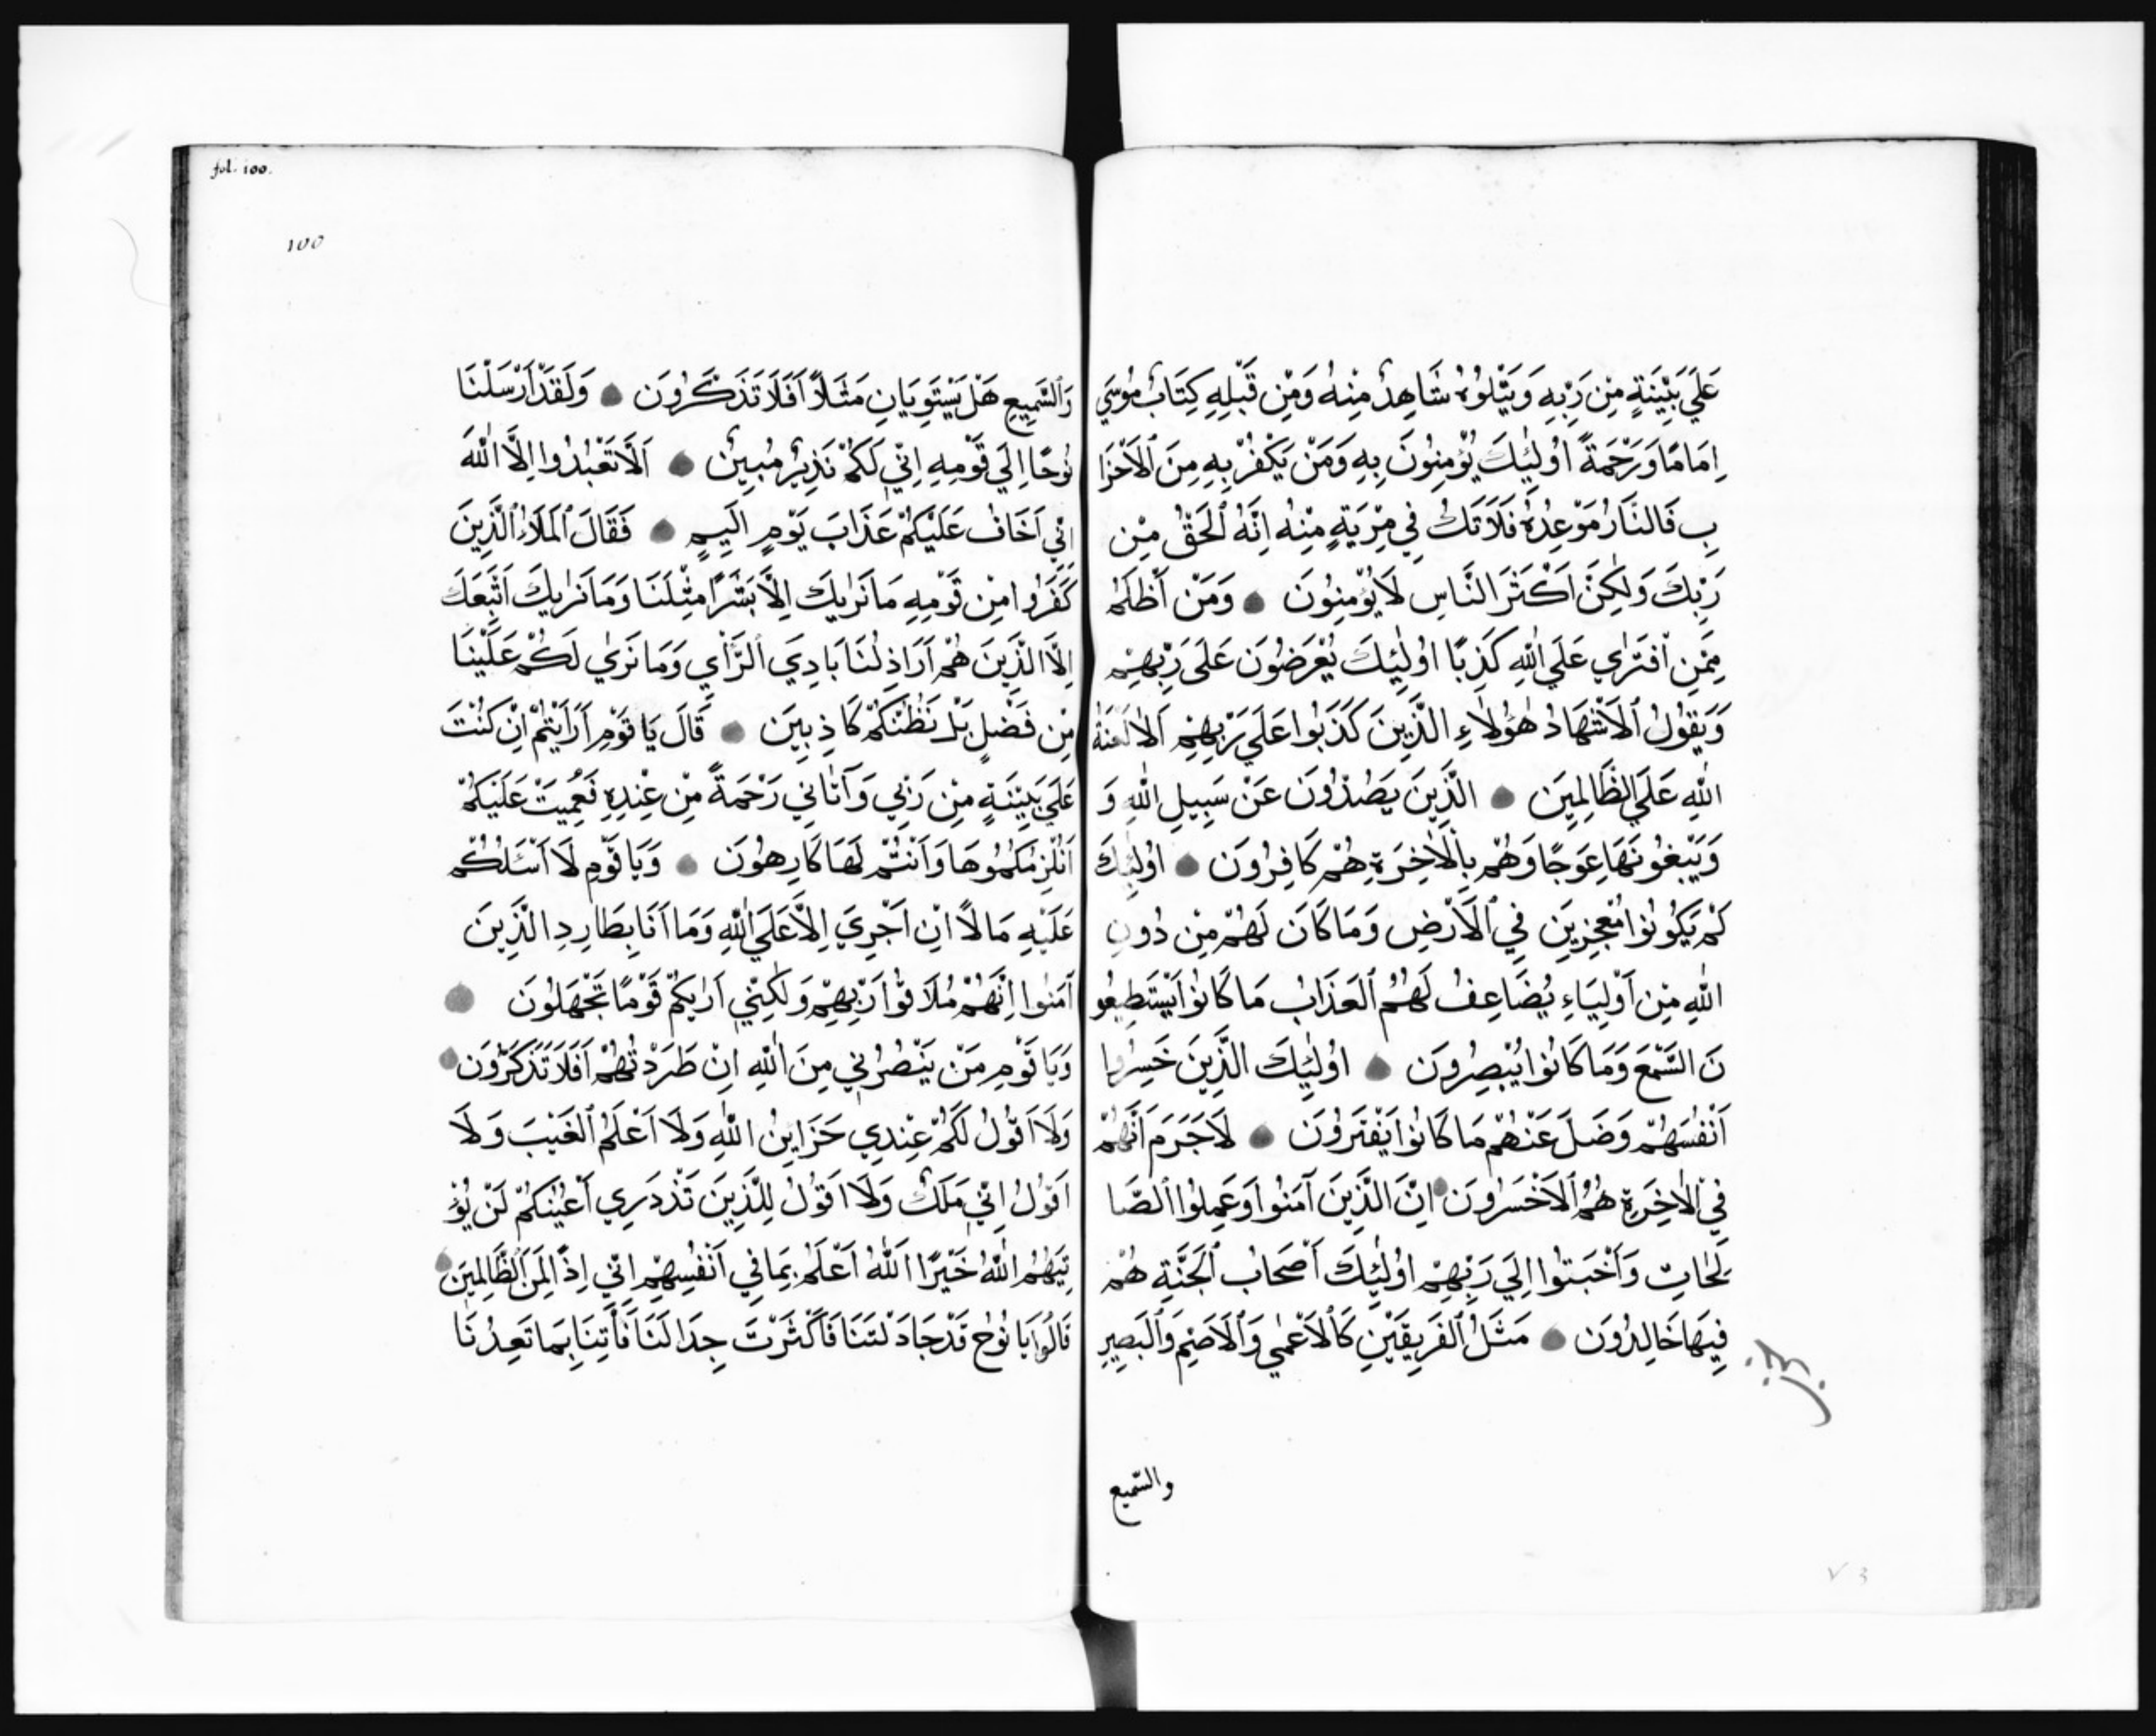 عَلَي بَيِّنَةٍ مِنْ رَبِّهِ وَيَتْلُوُهُ شَاهِدٌ مِنْهُ وَمِنْ قَبْلِهِ كِتَابُ مُوسَي
اِمَامًا وَرَحْمَةً اُولٰئِكَ يُؤْمِنُونَ بِهِ وَمَنْ يَكْفُرْ بِهِ مِنَ ٱلْاَحْزَا
بِ فَالنَّارُ مَوْعِدُهُ فَلَا تَكُ فِي مِرْيَةٍ مِنْهُ اِنَّهُ ٱلْحَقُّ مِنْ
رَبِّكَ وَلٰكِنَّ اَكْثَرَ النَّاسِ لَا يُؤْمِنُونَ وَمَنْ اَظْلَمُ
مِمَّنِ ٱفْتَرٰي عَلَي اللّٰهِ كَذِبًا اُولٰئِكَ يُعْرَضُونَ عَلَى رَبِّهِمْ
وَيَقُولُ ٱلْاَشْهَادُ هٰؤُلَاءِ الَّذِينَ كَذَبُوا عَلَي رَبِّهِمْ اَلَا لَعْنَةُ
اللّٰهِ عَلَي الظَّالِمِينَ الَّذِينَ يَصُدُّونَ عَنْ سَبِيلِ اللّٰهِ وَ
وَيَبْغُونَهَا عِوَجًا وَهُمْ بِالْاٰخِرَةِ هُمْ كَافِرُونَ اُولٰئِكَ
لَمْ يَكُونُوا مُعْجِزِينَ فِي ٱلْاَرْضِ وَمَا كَانَ لَهُمْ مِنْ دُونِ
اللّٰهِ مِنْ اَوْلِيَاءِ يُضَاعِفُ لَهُمُ ٱلْعَذَابُ مَا كَانُوا يَسْتَطِيعُو
نَ السَّمْعَ وَمَا كَانُوا يُبْصِرُونَ اُولٰئِكَ الَّذِينَ خَسِرُوا
اَنْفُسَهُمْ وَضَلَ عَنْهُمْ مَا كَانُوا يَفْتَرُونَ لَا جَرَمَ اَنَّهُمْ
فِي ٱلْاٰخِرَةِ هُمُ ٱلْاَخْسَرُونَ اِنَّ الَّذِينَ آمَنُوا وَعَمِلُوا ٱلصَّا
لِحَاتِ وَاَخْبَتُوا اِلَي رَبِّهِمْ اُولٰئِكَ اَصْحَابُ ٱلْجَنَّةِ هُمْ
فِيهَا خَالِدُونَ مَثَلُ ٱلْفَرِيقَيْنِ كَٱلْاَعْمٰي وَٱلْاَصَمِّ وَٱلْبَصِيرِ
والسّميع
fol. 100.
100
وَٱلسَّمِيعِ هَلْ يَسْتَوِيَانِ مَثَلًا اَفَلَا تَذَكَّرُونَ وَلَقَدْ اَرْسَلْنَا
نُوحًا اِلَي قَوْمِهِ اِنِّي لَكُمْ نَذِيرٌ مُبِينٌ اَلَّا تَعْبُدُوا اِلَّا اللّٰهَ
اِنِّي اَخَافُ عَلَيْكُمْ عَذَابَ يَوْمٍ اَلِيمٍ فَقَالَ ٱلْمَلَاُ ٱلَّذِينَ
كَفَرُوا مِنْ قَوْمِهِ مَا نَرٰيكَ اِلَّا بَشَرًا مِثْلَنَا وَمَا نَرٰيكَ اتَّبَعَكَ
اِلَّا الَّذِينَ هُمْ اَرَاذِلُنَا بَادِيَ ٱلرَّاْيِ وَمَا نَرٰي لَكُمْ عَلَيْنَا
مِنْ فَضْلٍ بَلْ نَظُنُّكُمْ كَاذِبِينَ قَالَ يَا قَوْمِ اَرَاَيْتُمْ اِنْ كُنْتَ
عَلَي بَيِّنَةٍ مِنْ رَبِّي وَآتَانِي رَحْمَةً مِنْ عِنْدِهِ فَعُمِيَتْ عَلَيْكُمْ
اَنُلْزِمُكُمُوهَا وَاَنْتُمْ لَهَا كَارِهُونَ وَيَا قَوْمِ لَا اَسْئَلُكُمْ
عَلَيْهِ مَالًا اِنْ اَجْرِيَ اِلَّا عَلَي اللّٰهِ وَمَا اَنَا بِطَارِدِ الَّذِينَ
آمَنُوا اِنَّهُمْ مُلَاقُوا رَبِّهِمْ وَلٰكِنِّي اَرٰيكُمْ قَوْمًا تَجْهَلُونَ
وَيَا قَوْمِ مَنْ يَنْصُرُنِي مِنَ اللّٰهِ اِنْ طَرَدْتُهُمْ اَفَلَا تَذَكَّرُونَ
وَلَا اَقُولُ لَكُمْ عِنْدِي خَزَايِنُ اللّٰهِ وَلَا اَعْلَمُ ٱلْغَيْبَ وَلَا
اَقُولُ اِنِّي مَلَكٌ وَلَا اَقُولُ لِلَّذِينَ تَزْدَرِي اَعْيُنُكُمْ لَنْ يُؤْ
تِيَهُمُ اللّٰهُ خَيْرًا اَللّٰهُ اَعْلَمُ بِمَا فِي اَنْفُسِهِمْ اِنِّي اِذًا لَمِنَ ٱلظَّالِمِينَ
قَالُوا يَا نُوحُ قَدْ جَادَلْتَنَا فَاَكْثَرْتَ جِدَالَنَا فَأْتِنَا بِمَا تَعِدُنَا